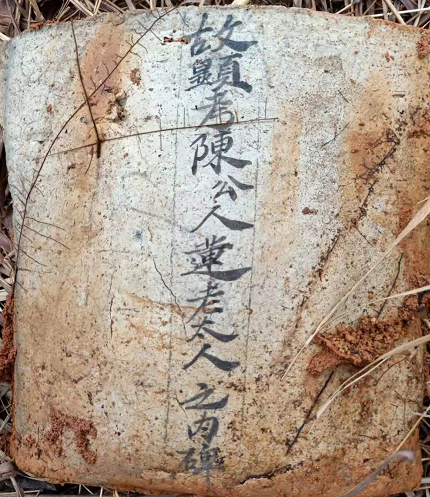 故顯考陳公人蓮老太人之内碑